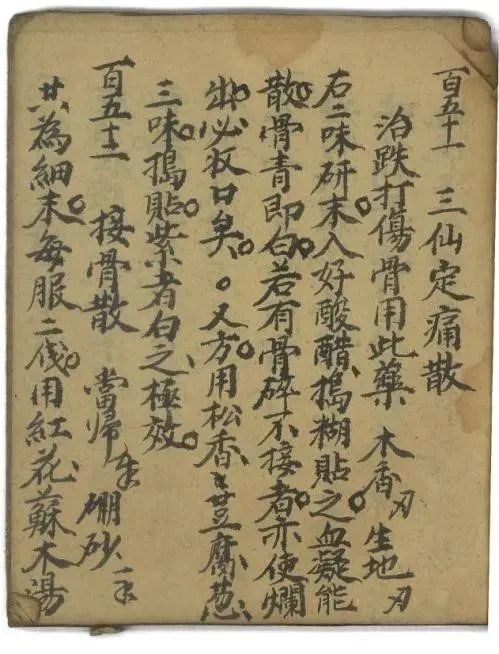 百五十一 三仙定痛散
治跌打傷骨用此藥 木香刄 生地刄
右二味研末。入好酸醋搗糊貼之。血凝能
散。骨青即白。若有骨碎不接者。亦使爛
出。必收口矣。。又方用松香豆腐葱
三味。搗貼。紫者白之極效。
百五十二 接骨散 當歸 硼砂
共為細末。每服二伐。用紅花蘇木湯